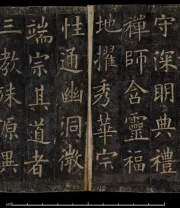 守深明典禮
禪師含靈福
地擢秀華宗
性通幽洞微
端宗其道者
三教殊源異